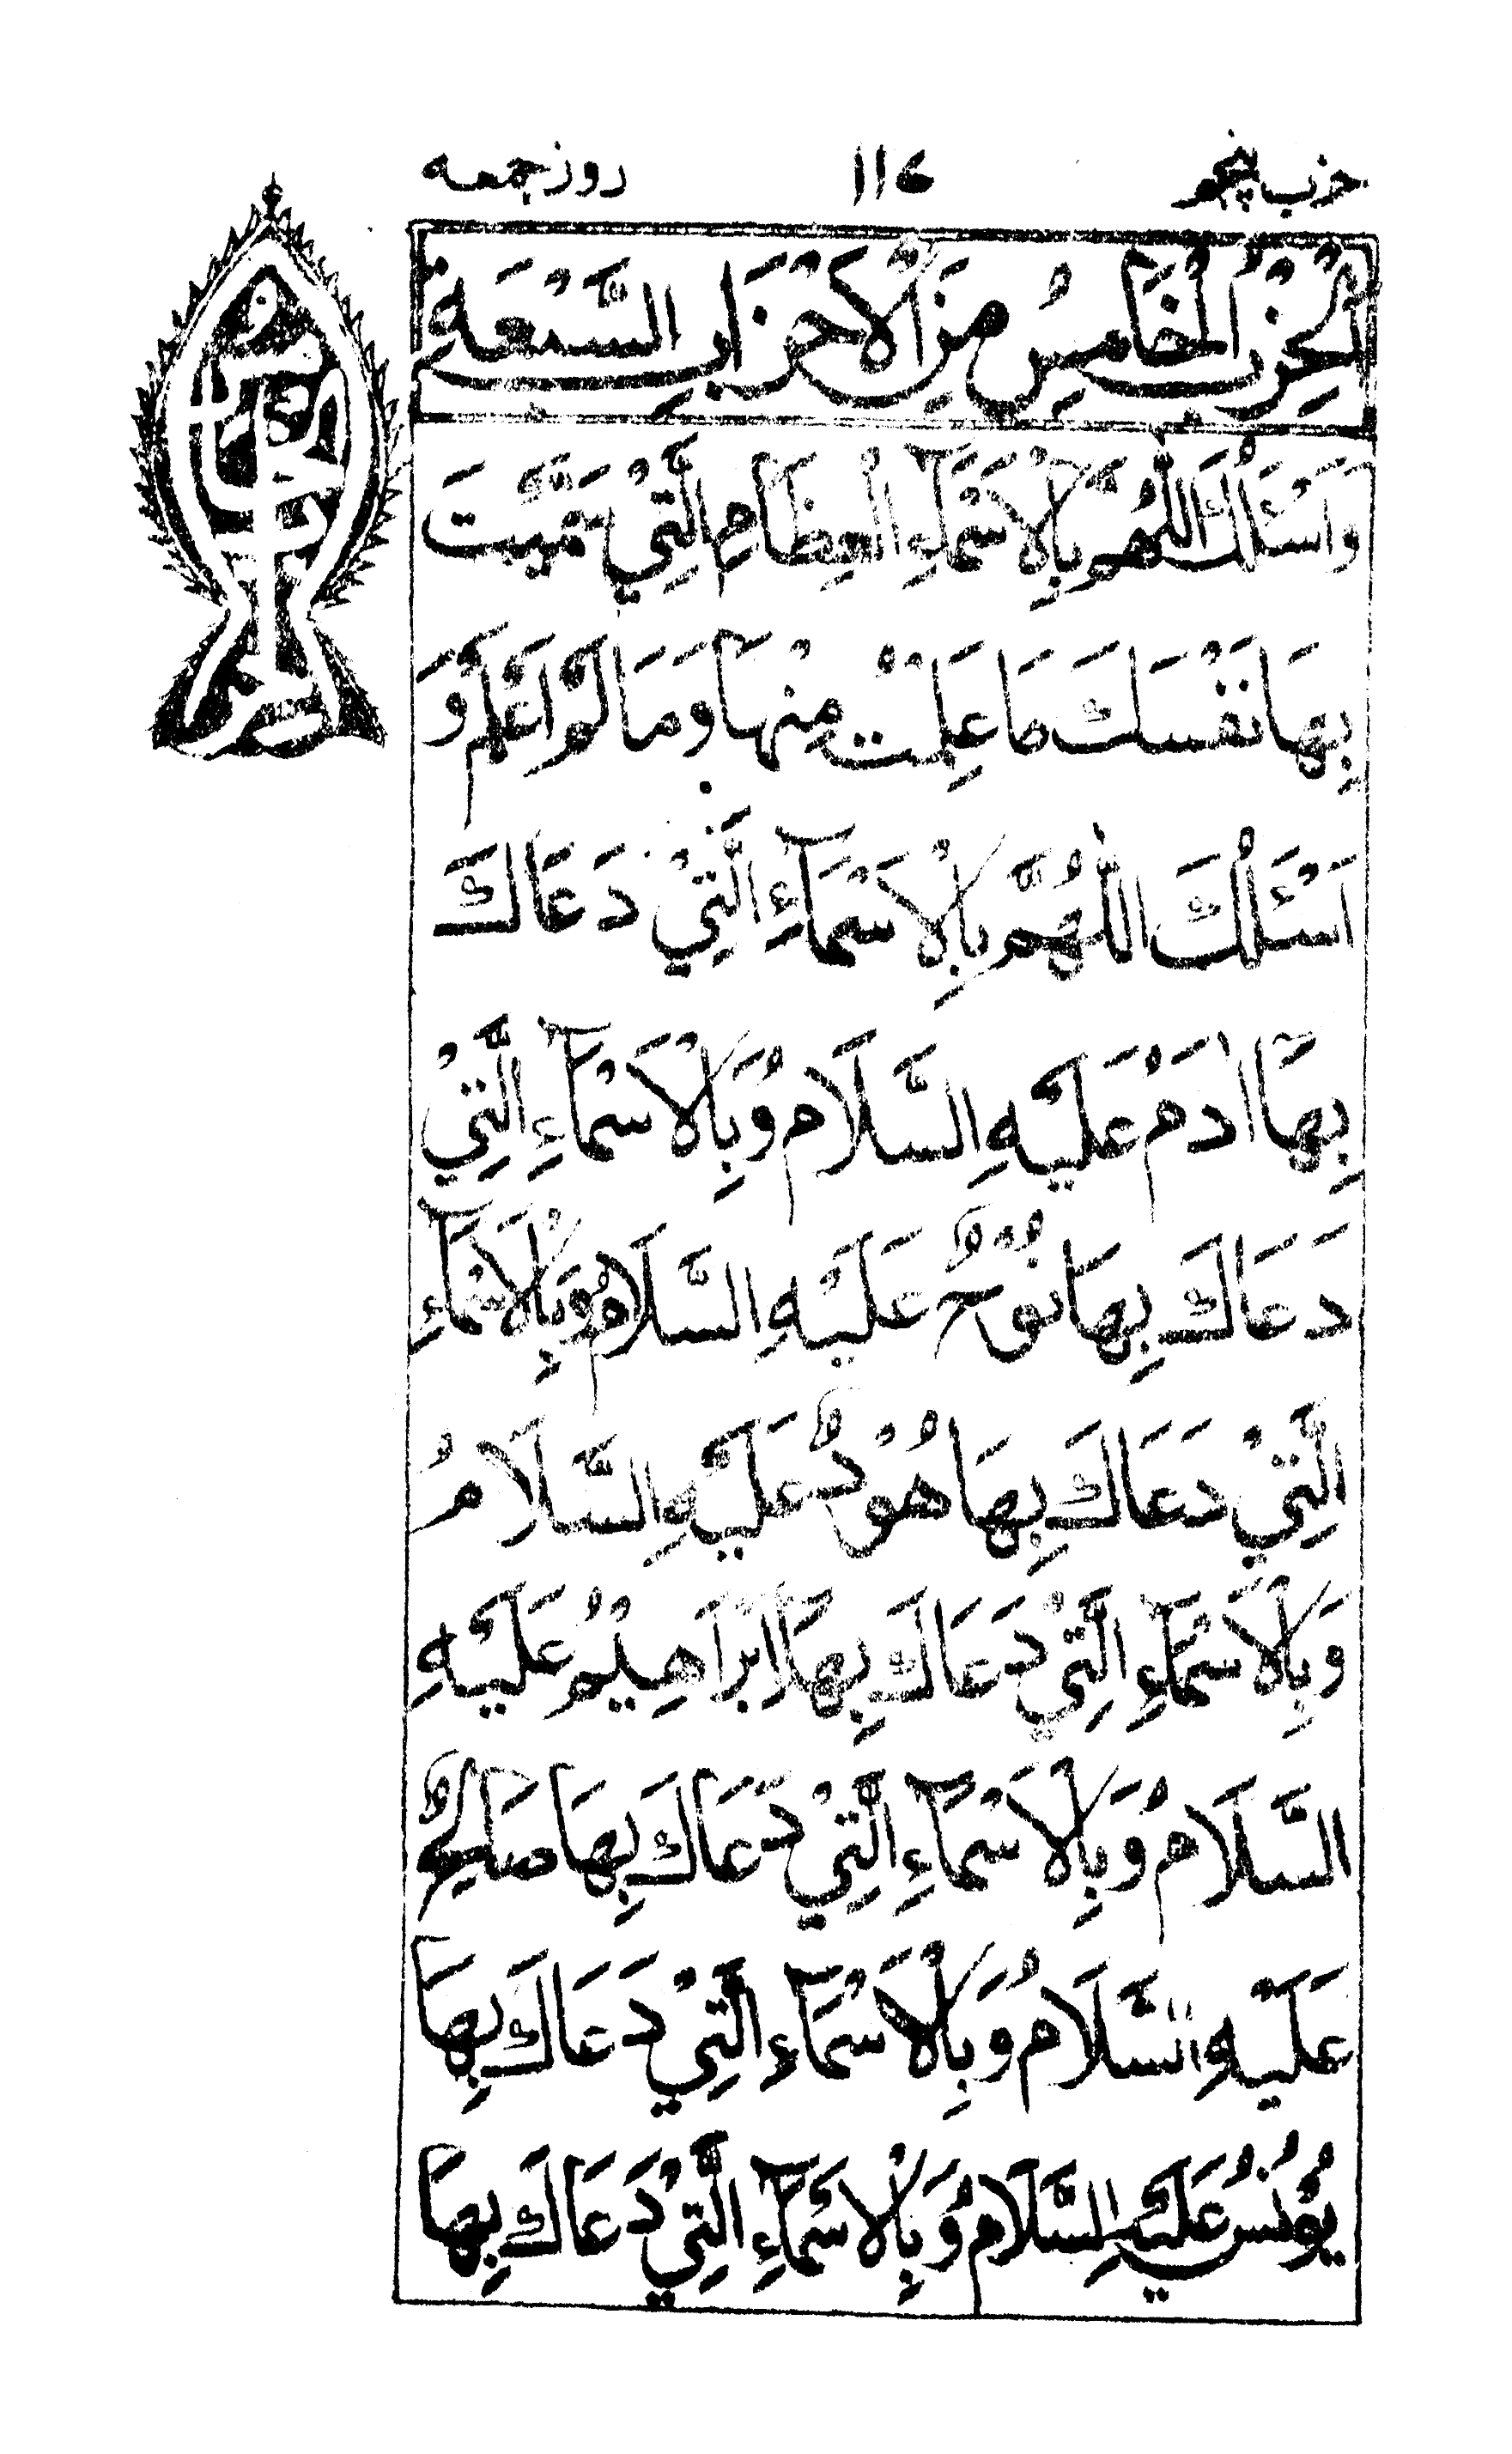 حزب پنجم ۱۱۶ روز جمعه
اَلْحِزْبُ الْخَامِسُ مِنَ الْاَحْزَابِ السَّبْعَةِ
وَاَسْئَلُكَ اللّٰهُمَّ بِالْاَسْمَآءِ الْعِظَامِ الَّتِيْ سَمَّيْتَ
بِهَا نَفْسَكَ مَا عَلِمْتُ مِنْهَا وَمَا لَمْ اَعْلَمْ وَ
اَسْئَلُكَ اللّٰهُمَّ بِالْاَسْمَآءِ الَّتِيْ دَعَاكَ
بِهَا اٰدَمُ عَلَيْهِ السَّلَامُ وَبِالْاَسْمَآءِ الَّتِيْ
دَعَاكَ بِهَا نُوْحٌ عَلَيْهِ السَّلَامُ وَبِالْاَسْمَآءِ
الَّتِيْ دَعَاكَ بِهَا هُوْدٌ عَلَيْهِ السَّلَامُ
وَبِالْاَسْمَآءِ الَّتِيْ دَعَاكَ بِهَا اِبْرَاهِيْمُ عَلَيْهِ
السَّلَامُ وَبِالْاَسْمَآءِ الَّتِيْ دَعَاكَ بِهَا صَالِحٌ
عَلَيْهِ السَّلَامُ وَبِالْاَسْمَآءِ الَّتِيْ دَعَاكَ بِهَا
يُوْنُسُ عَلَيْهِ السَّلَامُ وَبِالْاَسْمَآءِ الَّتِيْ دَعَاكَ بِهَا